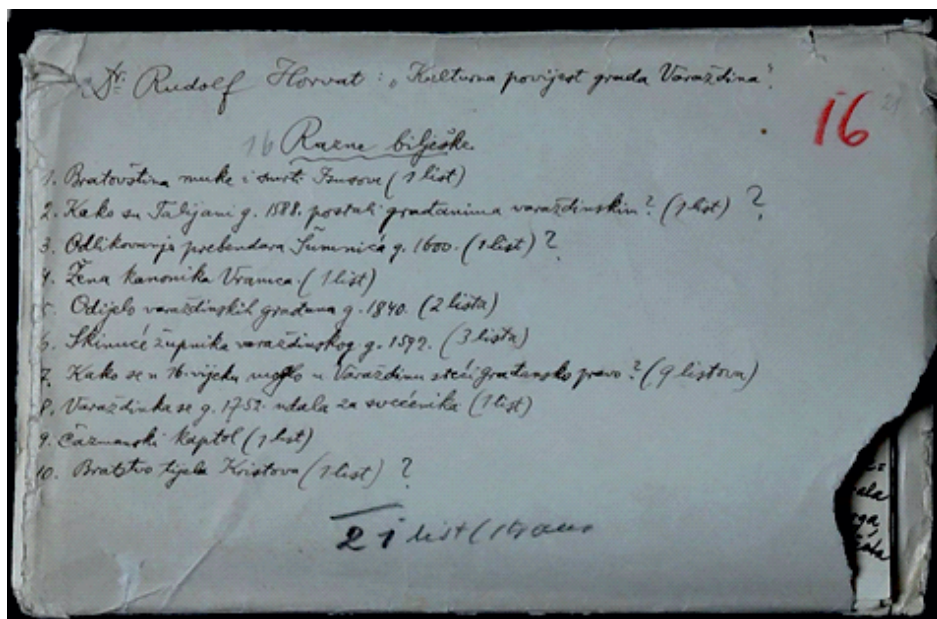 Dr. Rudolf Horvat: „Kulturna povijest grada Varaždina“.
16 21
16 Razne bilješke
1. Bratovština muke i smrti Isusove (1 list)
2. Kako su Talijani g. 1588. postali građanima varaždinskim? (1 list) ?
3. Odlikovanja prebendara Šumnića g. 1600. (1 list) ?
4. Žena kanonika Vramca. (1 list)
5. Odijelo varaždinskih građana g. 1840. (2 lista)
6. Skinuće župnika varaždinskog g. 1592. (3 lista)
7. Kako se u 16. vijeku moglo u Varaždinu steći građansko pravo? (9 listova)
8. Varaždinka se g. 1752. udala za svećenika (1 list)
9. Čazmanski kaptol (1 list)
10. Bratstvo tijela Kristova (1 list) ?
21 list